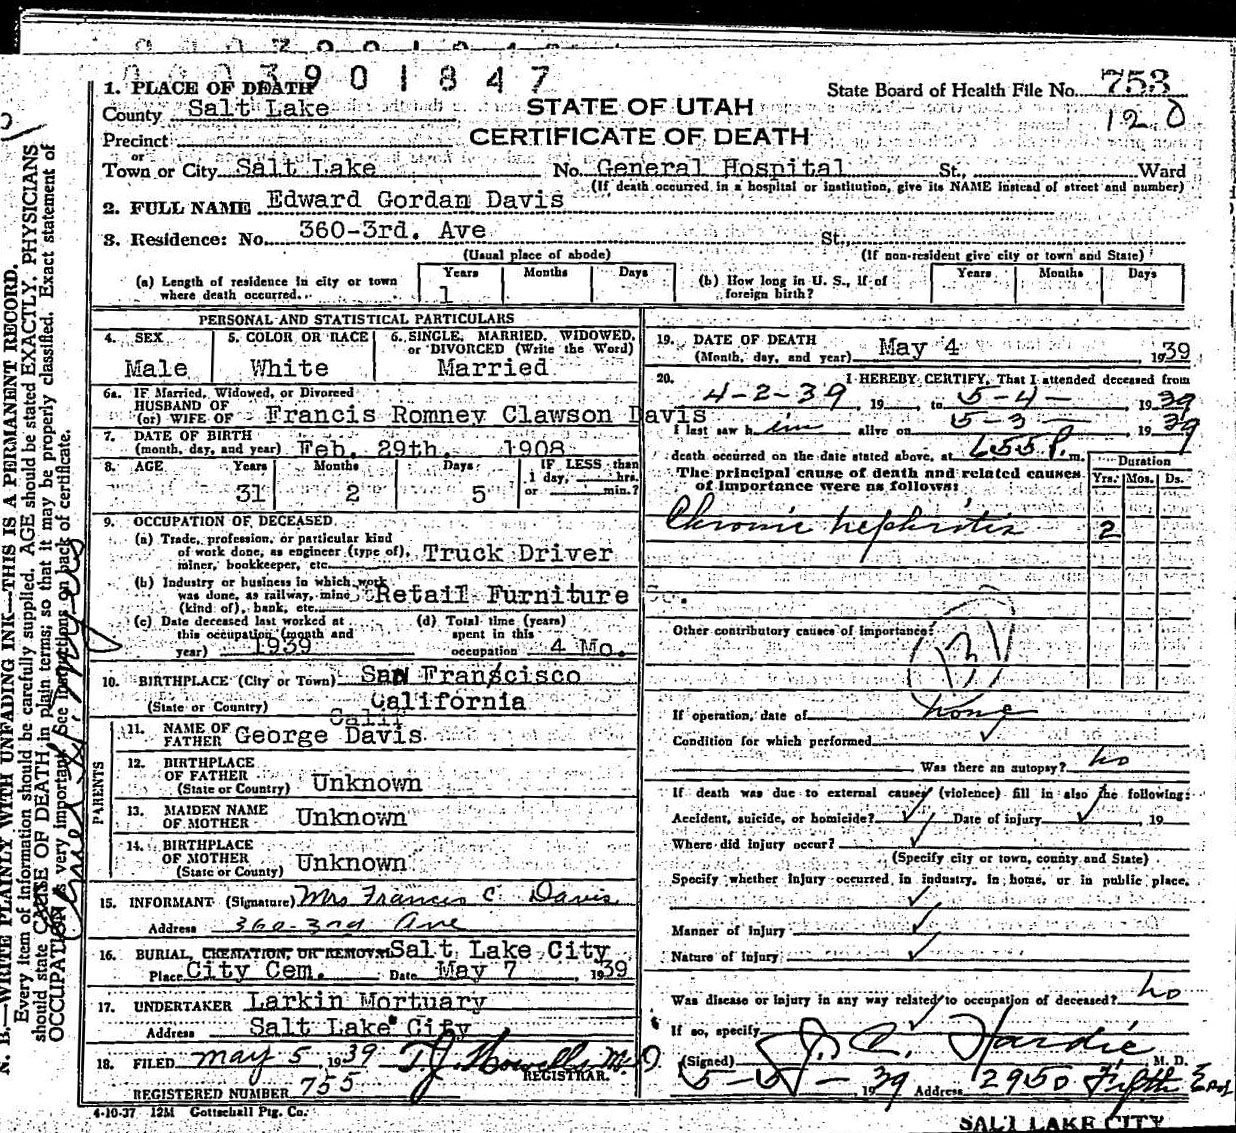 0 0 0 3 9 0 1 8 4 7
1. PLACE OF DEATH
County Salt Lake
STATE OF UTAH
CERTIFICATE OF DEATH
State Board of Health File No. 753
120
Precinct
or
Town or City Salt Lake No. General Hospital St., Ward
(If death occurred in a hospital or institution, give its NAME instead of street and number)
2. FULL NAME Edward Gordan Davis
3. Residence: No. 360-3rd. Ave St.,
(Usual place of abode) (If non-resident give city or town and State)
(a) Length of residence in city or town where death occurred. Years 1 Months Days
(b) How long in U. S., if of foreign birth? Years Months Days
PERSONAL AND STATISTICAL PARTICULARS
4. SEX Male
5. COLOR OR RACE White
6. SINGLE, MARRIED, WIDOWED, or DIVORCED (Write the Word) Married
6a. IF Married, Widowed, or Divorced
HUSBAND OF
(or) WIFE OF Francis Romney Clawson Davis
7. DATE OF BIRTH
(month, day, and year) Feb. 29th. 1908
8. AGE Years 31 Months 2 Days 5 IF LESS than 1 day, hrs. or min.?
9. OCCUPATION OF DECEASED
(a) Trade, profession, or particular kind
of work done, as engineer (type of), Truck Driver
miner, bookkeeper, etc.
(b) Industry or business in which work
was done, as railway, mine Retail Furniture Co.
(kind of), bank, etc.
(c) Date deceased last worked at
this occupation (month and
year) 1939
(d) Total time (years)
spent in this
occupation 4 Mo.
10. BIRTHPLACE (City or Town) San Francisco
(State or Country) California
Calif
PARENTS
11. NAME OF FATHER George Davis
12. BIRTHPLACE OF FATHER
(State or Country) Unknown
13. MAIDEN NAME OF MOTHER Unknown
14. BIRTHPLACE OF MOTHER
(State or Country) Unknown
15. INFORMANT (Signature) Mrs Francis C. Davis
Address 360-3rd Ave
16. BURIAL, CREMATION, OR REMOVAL Salt Lake City
Place City Cem. Date May 7, 1939
17. UNDERTAKER Larkin Mortuary
Address Salt Lake City
18. FILED May 5, 1939 T.J. Howells M.D.
REGISTRAR.
REGISTERED NUMBER 755
4-10-37 12M Gottschall Ptg. Co.
19. DATE OF DEATH
(Month, day, and year) May 4, 1939
20. I HEREBY CERTIFY, That I attended deceased from
4-2-39, 19 to 5-4-, 1939
I last saw h im alive on 5-3-, 1939
death occurred on the date stated above, at 655 P. m.
The principal cause of death and related causes
of importance were as follows:
Duration
Yrs. Mos. Ds.
Chronic nephritis 2
Other contributory causes of importance:
131
If operation, date of none
Condition for which performed
Was there an autopsy? no
If death was due to external causes (violence) fill in also the following:
Accident, suicide, or homicide? Date of injury, 19
Where did injury occur?
(Specify city or town, county and State)
Specify whether injury occurred in industry, in home, or in public place.
Manner of injury
Nature of injury
Was disease or injury in any way related to occupation of deceased? no
If so, specify
(Signed) J. C. Hardie M. D.
5-5-, 1939 Address 2950 Fifth East
SALT LAKE CITY
N. B.—WRITE PLAINLY WITH UNFADING INK—THIS IS A PERMANENT RECORD.
Every item of information should be carefully supplied. AGE should be stated EXACTLY. PHYSICIANS
should state CAUSE OF DEATH in plain terms; so that it may be properly classified. Exact statement of
OCCUPATION is very important. See instructions on back of certificate.